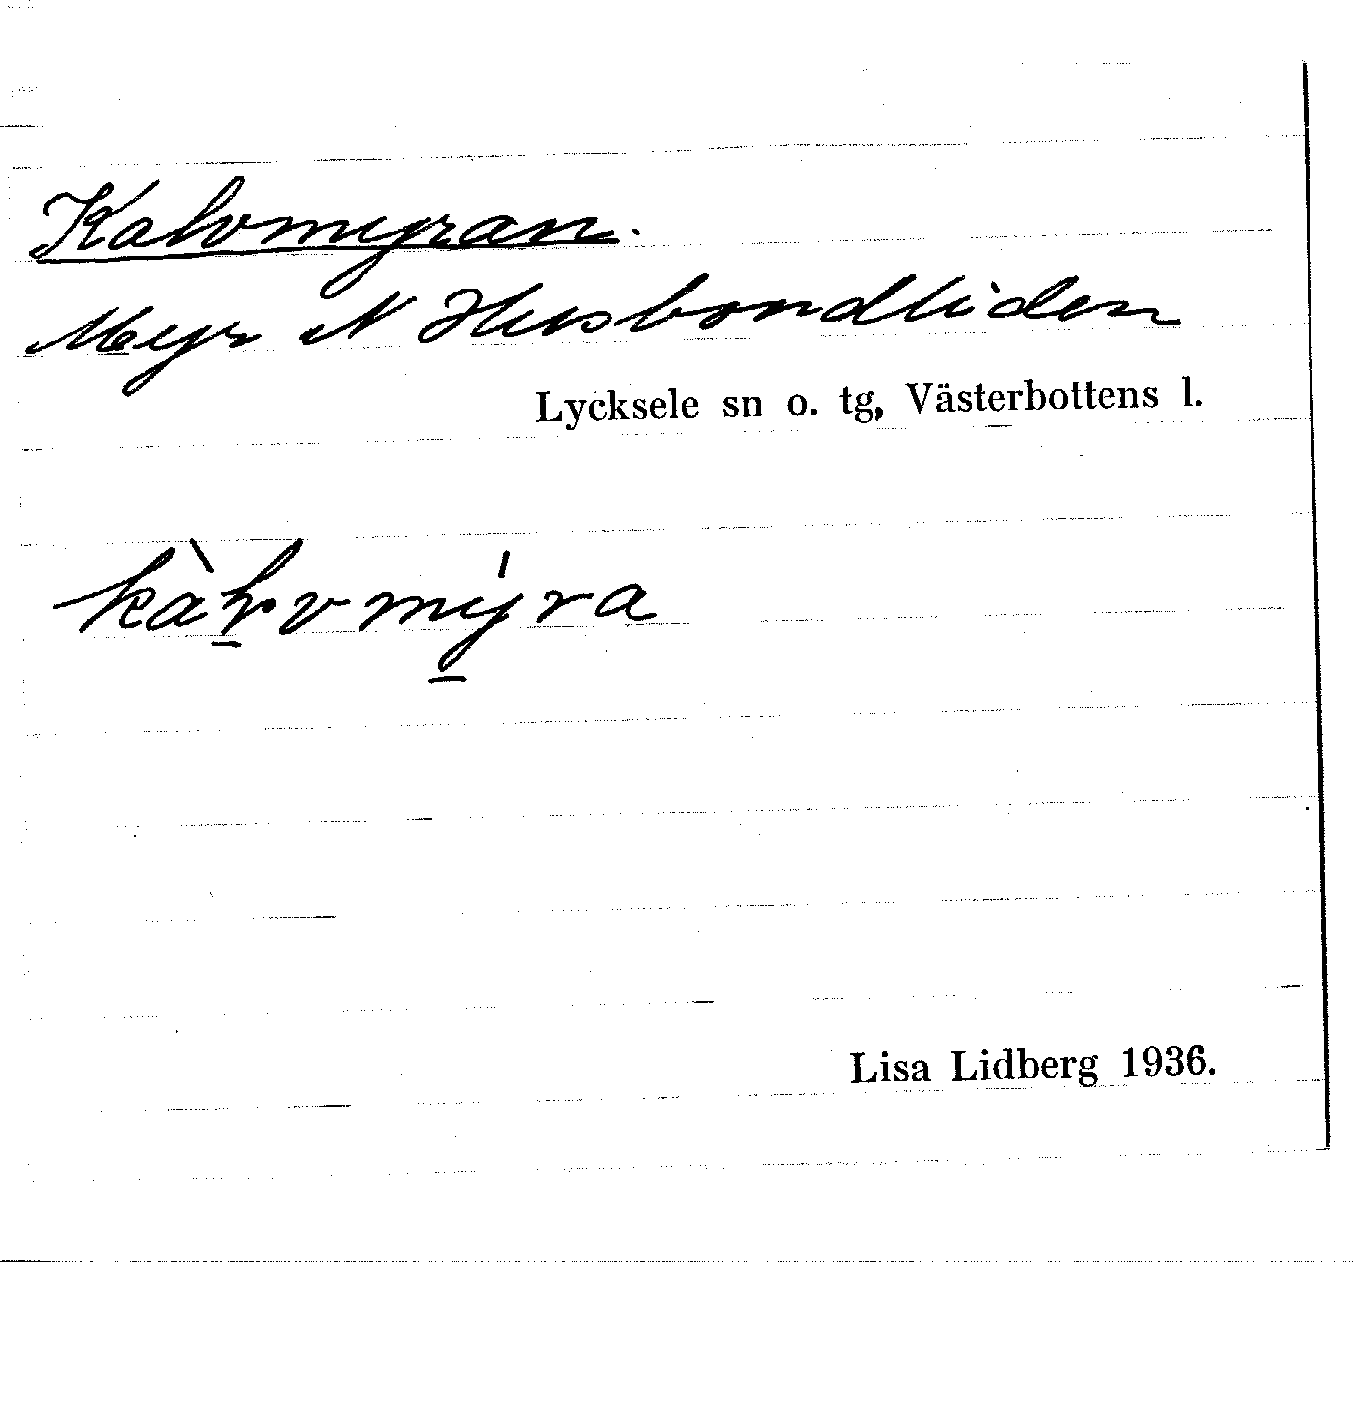 Kalvmyran.
Myr N Husbondliden
Lycksele sn o. tg, Västerbottens l.
kàl̠vmý̠ra
Lisa Lidberg 1936.